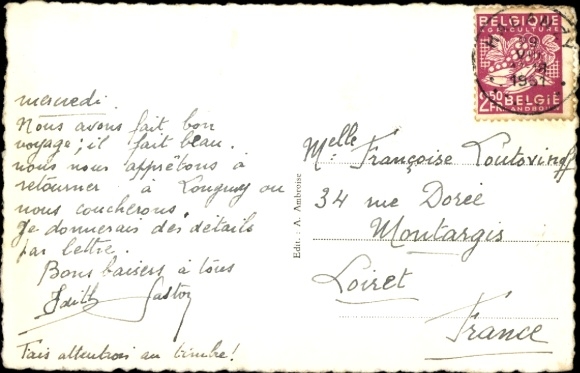 mercredi.
Nous avons fait bon
voyage, il fait beau.
nous nous apprêtons à
retourner à Longwy ou
nous coucherons.
Je donnerais des détails
par lettre.
Bons baisers à tous
Edith Gaston
Fais attention au timbre!
Edit.: A. Ambroise
BELGIQUE
AGRICULTURE
1951
2,50
BELGIË
FR LANDBOUW
Melle Françoise Loutovinoff
34 rue Dorée
Montargis
Loiret
France